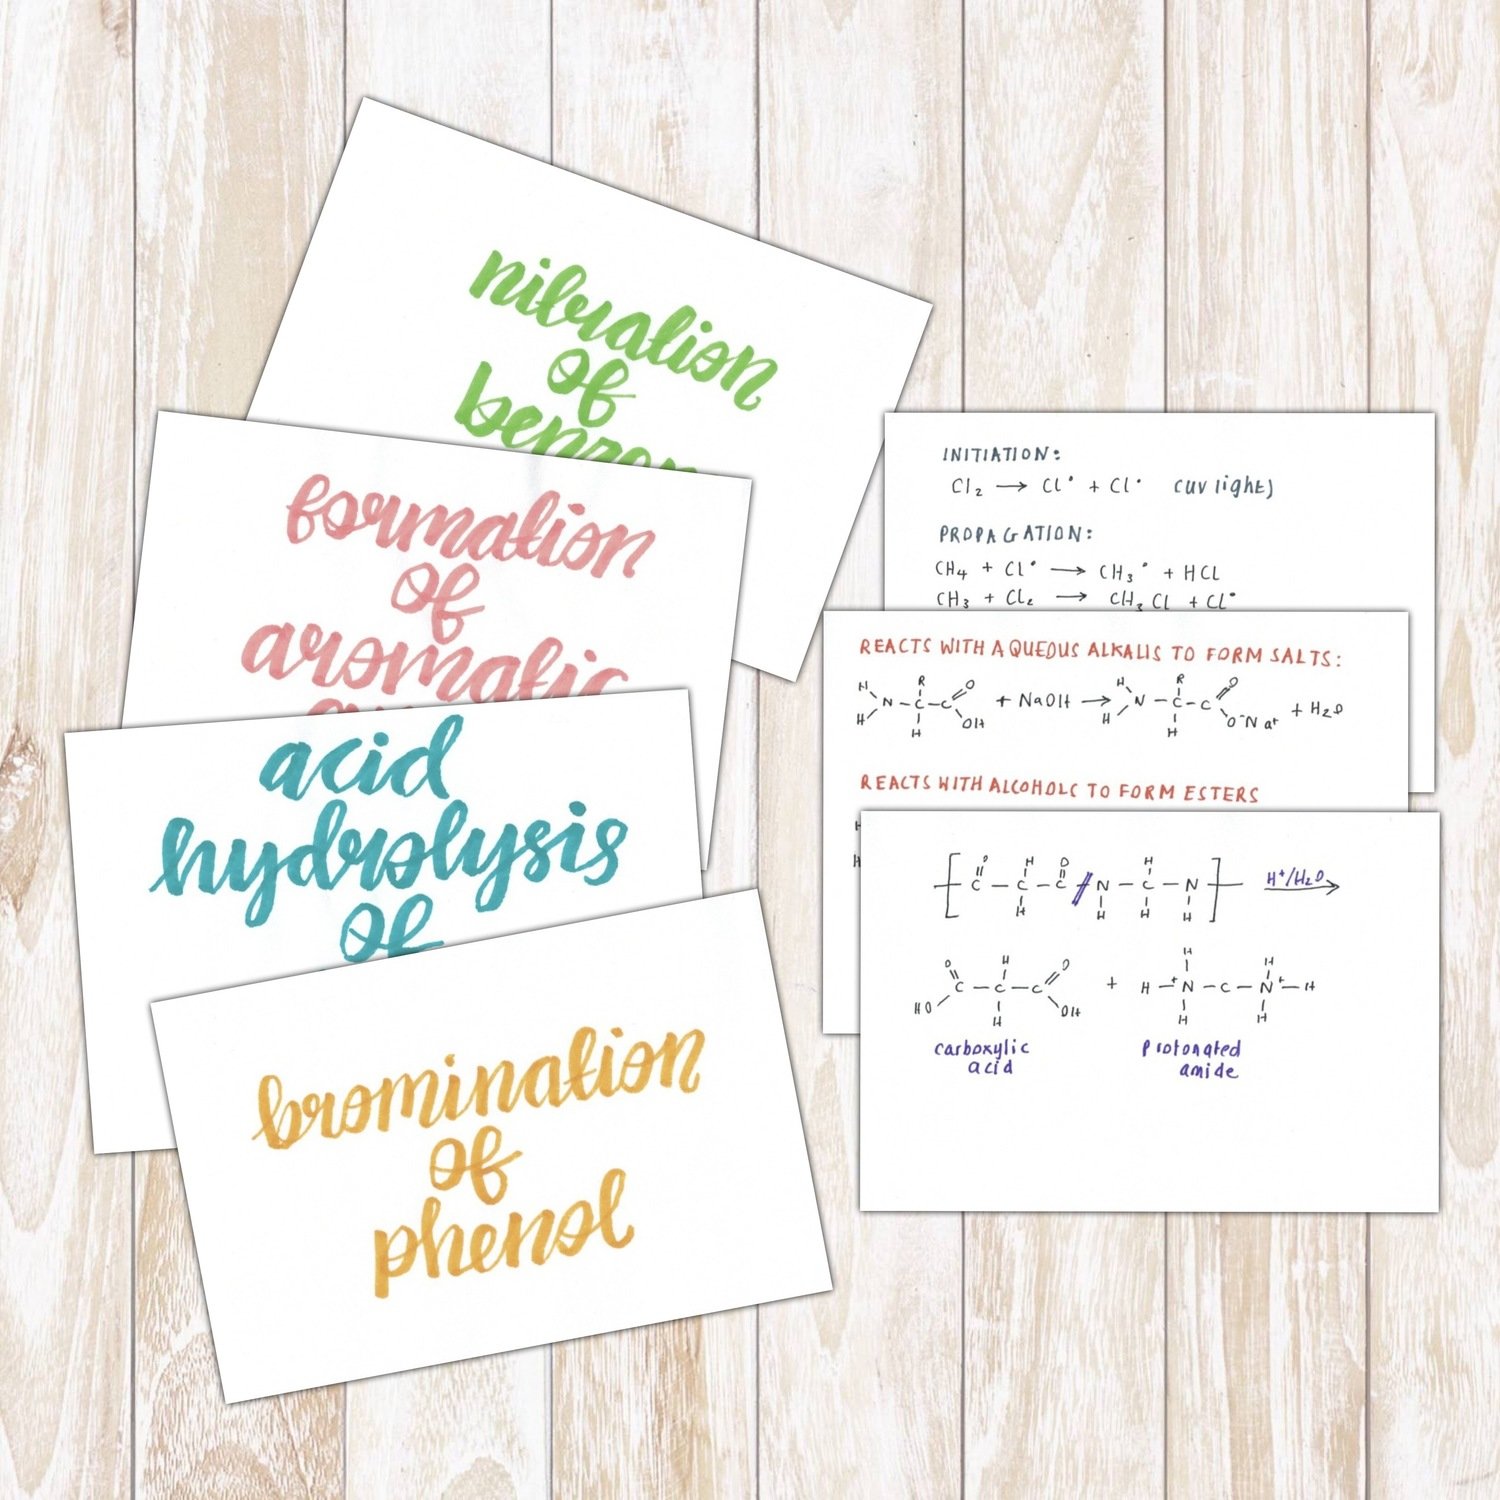 nitration
of
formation
of
aromatic
acid
hydrolysis
of
bromination
of
phenol
INITIATION:
Cl₂ → Cl• + Cl• (uv light)
PROPAGATION:
CH₄ + Cl• → CH₃• + HCl
CH₃ + Cl₂ → CH₃Cl + Cl•
REACTS WITH AQUEOUS ALKALIS TO FORM SALTS:
H R O H R O
N - C - C + NaOH → N - C - C + H₂O
H H OH H H O⁻Na⁺
REACTS WITH ALCOHOLS TO FORM ESTERS
H
H
O H O H
[ C - C - C - N - C - N ] H⁺/H₂O →
H H H H
O H O H H
C - C - C + H - N⁺ - C - N⁺ - H
HO H OH H H
carboxylic protonated
acid amide